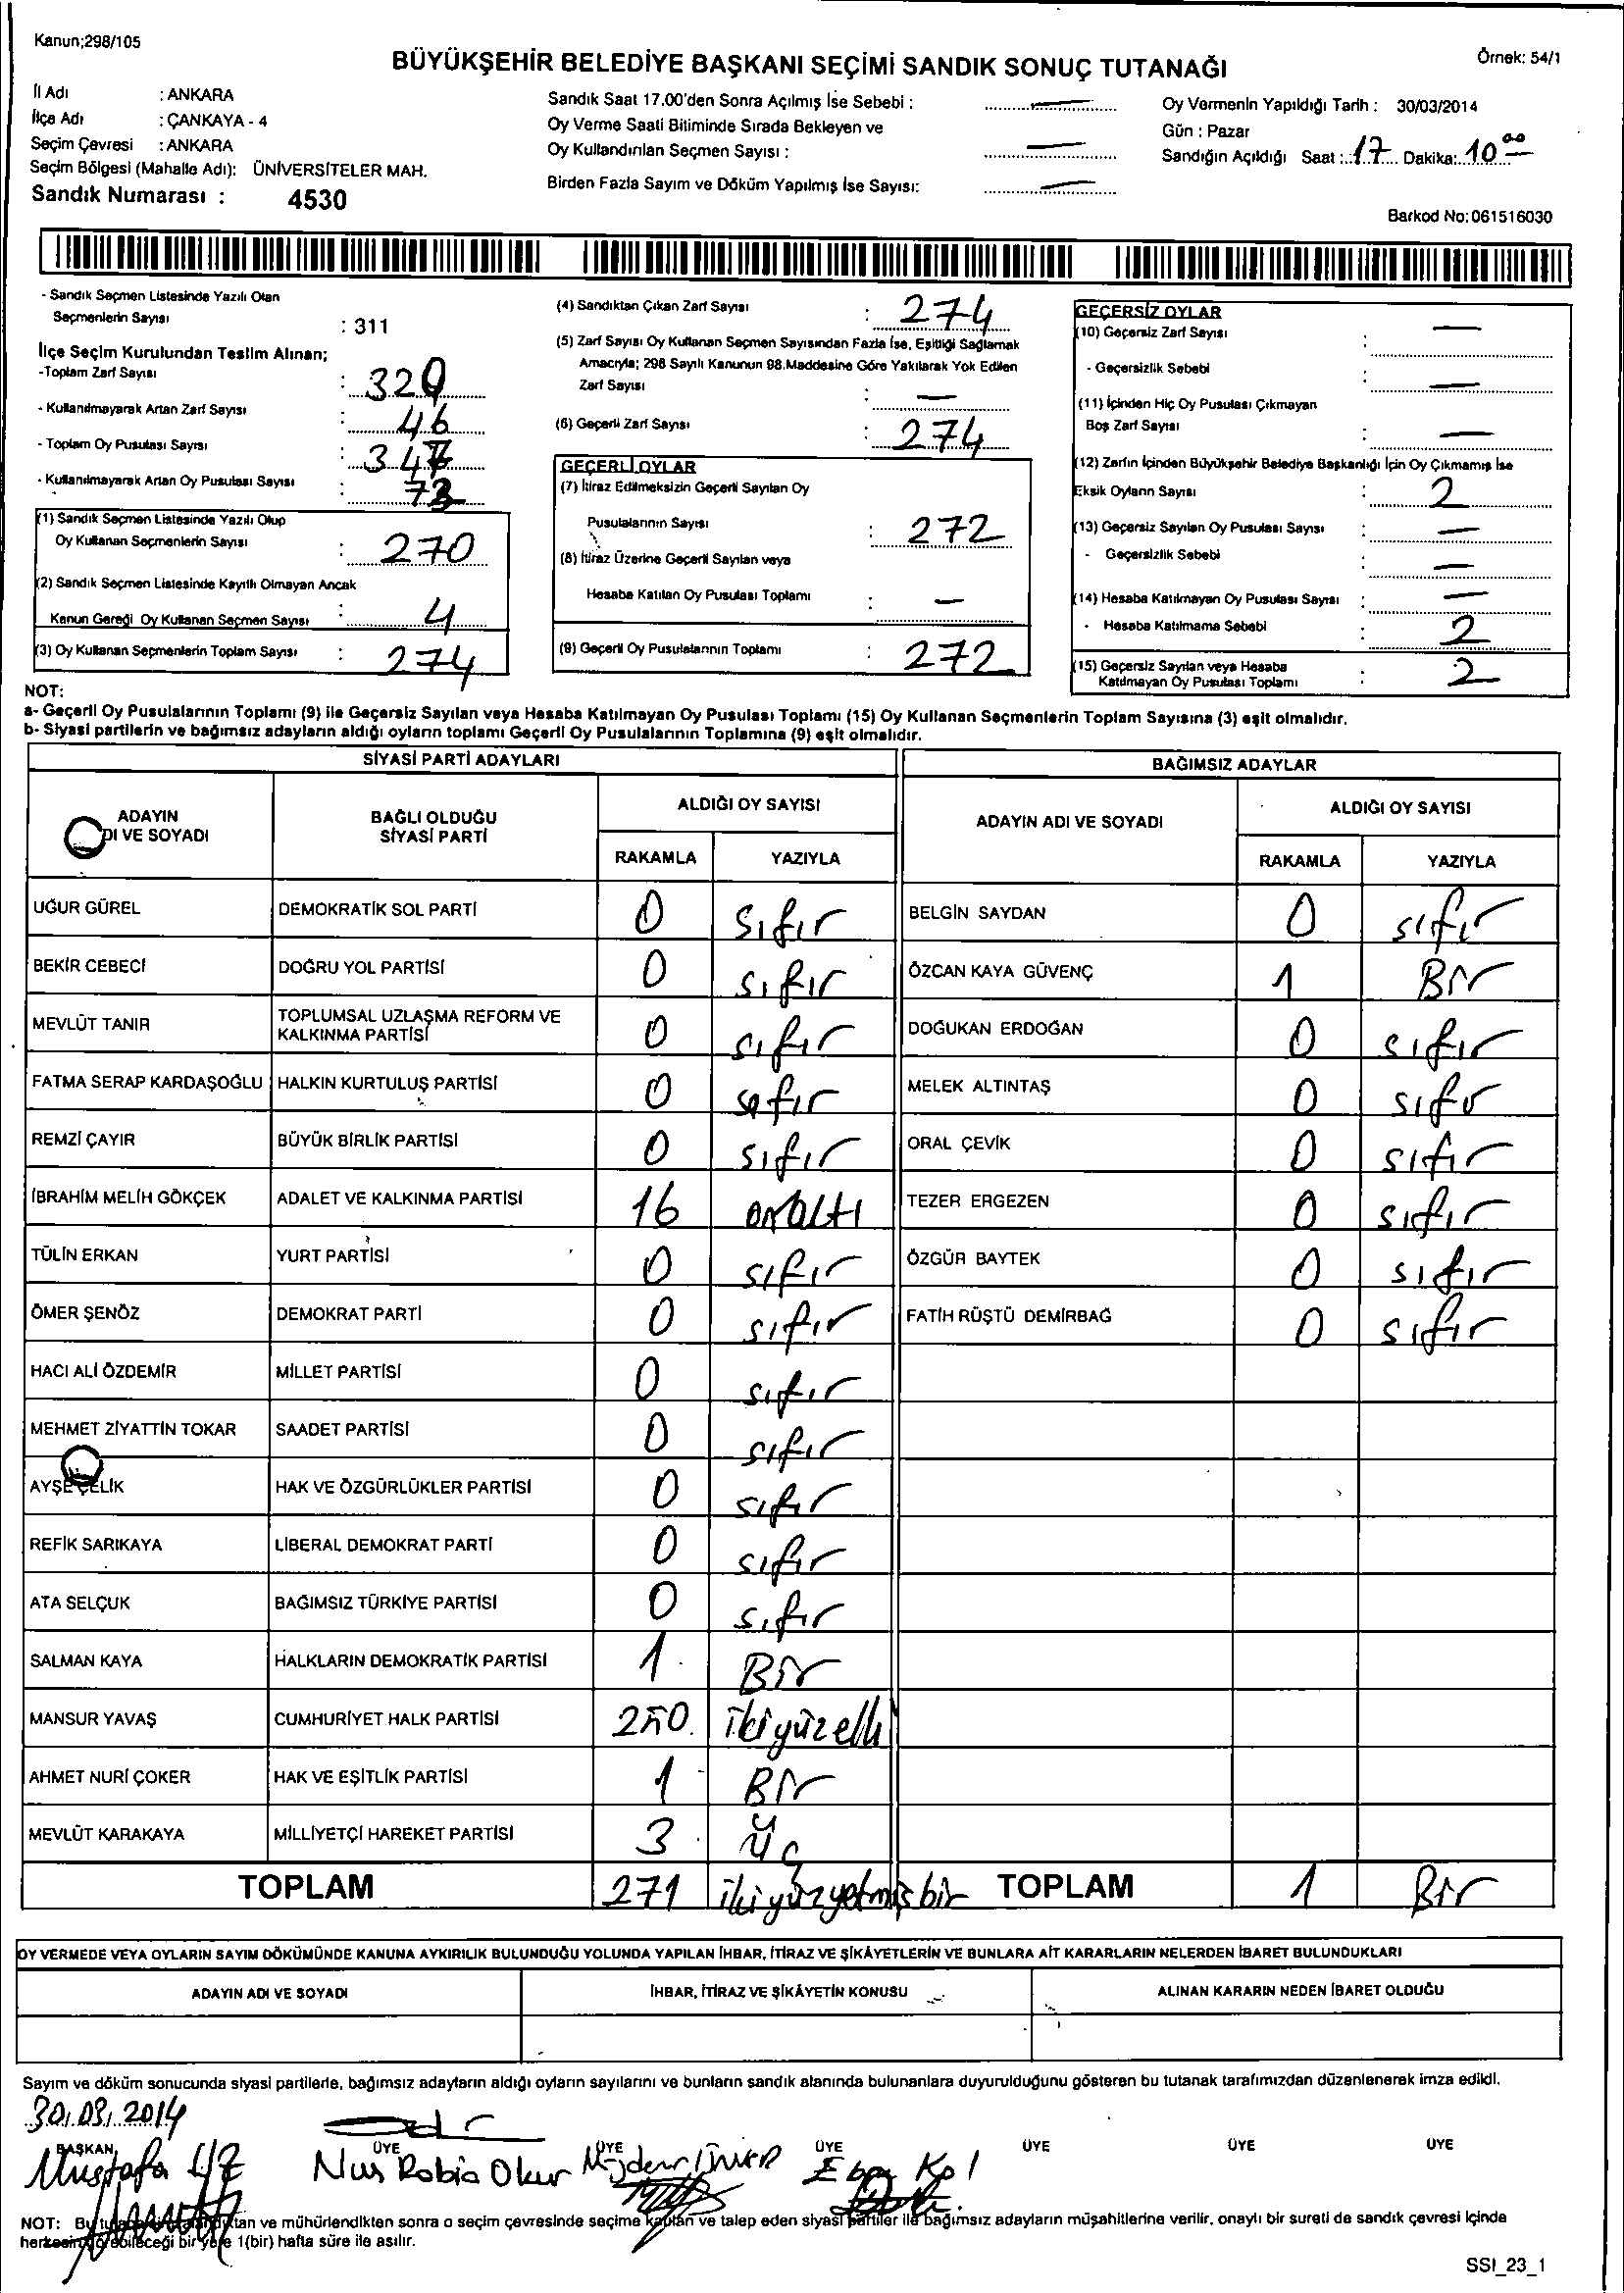 Kanun;298/105
BÜYÜKŞEHİR BELEDİYE BAŞKANI SEÇİMİ SANDIK SONUÇ TUTANAĞI
Örnek: 54/1
İl Adı : ANKARA
İlçe Adı : ÇANKAYA - 4
Seçim Çevresi : ANKARA
Seçim Bölgesi (Mahalle Adı): ÜNİVERSİTELER MAH.
Sandık Numarası : 4530
Sandık Saat 17.00'den Sonra Açılmış İse Sebebi : —
Oy Verme Saati Bitiminde Sırada Bekleyen ve
Oy Kullandırılan Seçmen Sayısı : —
Birden Fazla Sayım ve Döküm Yapılmış İse Sayısı: —
Oy Vermenin Yapıldığı Tarih : 30/03/2014
Gün : Pazar
Sandığın Açıldığı Saat : 17 Dakika: 10 00
Barkod No: 061516030
- Sandık Seçmen Listesinde Yazılı Olan
Seçmenlerin Sayısı : 311
İlçe Seçim Kurulundan Teslim Alınan;
-Toplam Zarf Sayısı : 320
- Kullanılmayarak Artan Zarf Sayısı : 46
- Toplam Oy Pusulası Sayısı : 347
- Kullanılmayarak Artan Oy Pusulası Sayısı : 73
(1) Sandık Seçmen Listesinde Yazılı Olup
Oy Kullanan Seçmenlerin Sayısı : 270
(2) Sandık Seçmen Listesinde Kayıtlı Olmayan Ancak
Kanun Gereği Oy Kullanan Seçmen Sayısı : 4
(3) Oy Kullanan Seçmenlerin Toplam Sayısı : 274
(4) Sandıktan Çıkan Zarf Sayısı : 274
(5) Zarf Sayısı Oy Kullanan Seçmen Sayısından Fazla İse, Eşitliği Sağlamak
Amacıyla; 298 Sayılı Kanunun 98.Maddesine Göre Yakılarak Yok Edilen
Zarf Sayısı : —
(6) Geçerli Zarf Sayısı : 274
GEÇERLİ OYLAR
(7) İtiraz Edilmeksizin Geçerli Sayılan Oy
Pusulalarının Sayısı : 272
(8) İtiraz Üzerine Geçerli Sayılan veya
Hesaba Katılan Oy Pusulası Toplamı : —
(9) Geçerli Oy Pusulalarının Toplamı : 272
GEÇERSİZ OYLAR
(10) Geçersiz Zarf Sayısı : —
- Geçersizlik Sebebi : —
(11) İçinden Hiç Oy Pusulası Çıkmayan
Boş Zarf Sayısı : —
(12) Zarfın İçinden Büyükşehir Belediye Başkanlığı İçin Oy Çıkmamış İse
Eksik Oyların Sayısı : 2
(13) Geçersiz Sayılan Oy Pusulası Sayısı : —
- Geçersizlik Sebebi : —
(14) Hesaba Katılmayan Oy Pusulası Sayısı : —
- Hesaba Katılmama Sebebi : 2
(15) Geçersiz Sayılan veya Hesaba
Katılmayan Oy Pusulası Toplamı : 2
NOT:
a- Geçerli Oy Pusulalarının Toplamı (9) ile Geçersiz Sayılan veya Hesaba Katılmayan Oy Pusulası Toplamı (15) Oy Kullanan Seçmenlerin Toplam Sayısına (3) eşit olmalıdır.
b- Siyasi partilerin ve bağımsız adayların aldığı oyların toplamı Geçerli Oy Pusulalarının Toplamına (9) eşit olmalıdır.
SİYASİ PARTİ ADAYLARI
ADAYIN
DI VE SOYADI
BAĞLI OLDUĞU
SİYASİ PARTİ
ALDIĞI OY SAYISI
RAKAMLA YAZIYLA
UĞUR GÜREL DEMOKRATİK SOL PARTİ 0 sıfır
BEKİR CEBECİ DOĞRU YOL PARTİSİ 0 sıfır
MEVLÜT TANIR TOPLUMSAL UZLAŞMA REFORM VE
KALKINMA PARTİSİ 0 sıfır
FATMA SERAP KARDAŞOĞLU HALKIN KURTULUŞ PARTİSİ 0 sıfır
REMZİ ÇAYIR BÜYÜK BİRLİK PARTİSİ 0 sıfır
İBRAHİM MELİH GÖKÇEK ADALET VE KALKINMA PARTİSİ 16 onaltı
TÜLİN ERKAN YURT PARTİSİ 0 sıfır
ÖMER ŞENÖZ DEMOKRAT PARTİ 0 sıfır
HACI ALİ ÖZDEMİR MİLLET PARTİSİ 0 sıfır
MEHMET ZİYATTİN TOKAR SAADET PARTİSİ 0 sıfır
AYŞE ÇELİK HAK VE ÖZGÜRLÜKLER PARTİSİ 0 sıfır
REFİK SARIKAYA LİBERAL DEMOKRAT PARTİ 0 sıfır
ATA SELÇUK BAĞIMSIZ TÜRKİYE PARTİSİ 0 sıfır
SALMAN KAYA HALKLARIN DEMOKRATİK PARTİSİ 1 Bir
MANSUR YAVAŞ CUMHURİYET HALK PARTİSİ 250 ikiyüzelli
AHMET NURİ ÇOKER HAK VE EŞİTLİK PARTİSİ 1 Bir
MEVLÜT KARAKAYA MİLLİYETÇİ HAREKET PARTİSİ 3 üç
TOPLAM 271 ikiyüzyetmişbir
BAĞIMSIZ ADAYLAR
ADAYIN ADI VE SOYADI
ALDIĞI OY SAYISI
RAKAMLA YAZIYLA
BELGİN SAYDAN 0 sıfır
ÖZCAN KAYA GÜVENÇ 1 Bir
DOĞUKAN ERDOĞAN 0 sıfır
MELEK ALTINTAŞ 0 sıfır
ORAL ÇEVİK 0 sıfır
TEZER ERGEZEN 0 sıfır
ÖZGÜR BAYTEK 0 sıfır
FATİH RÜŞTÜ DEMİRBAĞ 0 sıfır
TOPLAM 1 Bir
OY VERMEDE VEYA OYLARIN SAYIM DÖKÜMÜNDE KANUNA AYKIRILIK BULUNDUĞU YOLUNDA YAPILAN İHBAR, İTİRAZ VE ŞİKÂYETLERİN VE BUNLARA AİT KARARLARIN NELERDEN İBARET BULUNDUKLARI
ADAYIN ADI VE SOYADI İHBAR, İTİRAZ VE ŞİKÂYETİN KONUSU ALINAN KARARIN NEDEN İBARET OLDUĞU
Sayım ve döküm sonucunda siyasi partilerle, bağımsız adayların aldığı oyların sayılarını ve bunların sandık alanında bulunanlara duyurulduğunu gösteren bu tutanak tarafımızdan düzenlenerek imza edildi.
30.03.2014
BAŞKAN ÜYE ÜYE ÜYE ÜYE ÜYE ÜYE
Mustafa Nur Rabia Okur
NOT: Bu tutanak ve mühürlendikten sonra o seçim çevresinde seçime katılan ve talep eden siyasi partiler ile bağımsız adayların müşahitlerine verilir, onaylı bir sureti de sandık çevresi içinde
herkesin görebileceği bir yere 1(bir) hafta süre ile asılır.
SSI_23_1